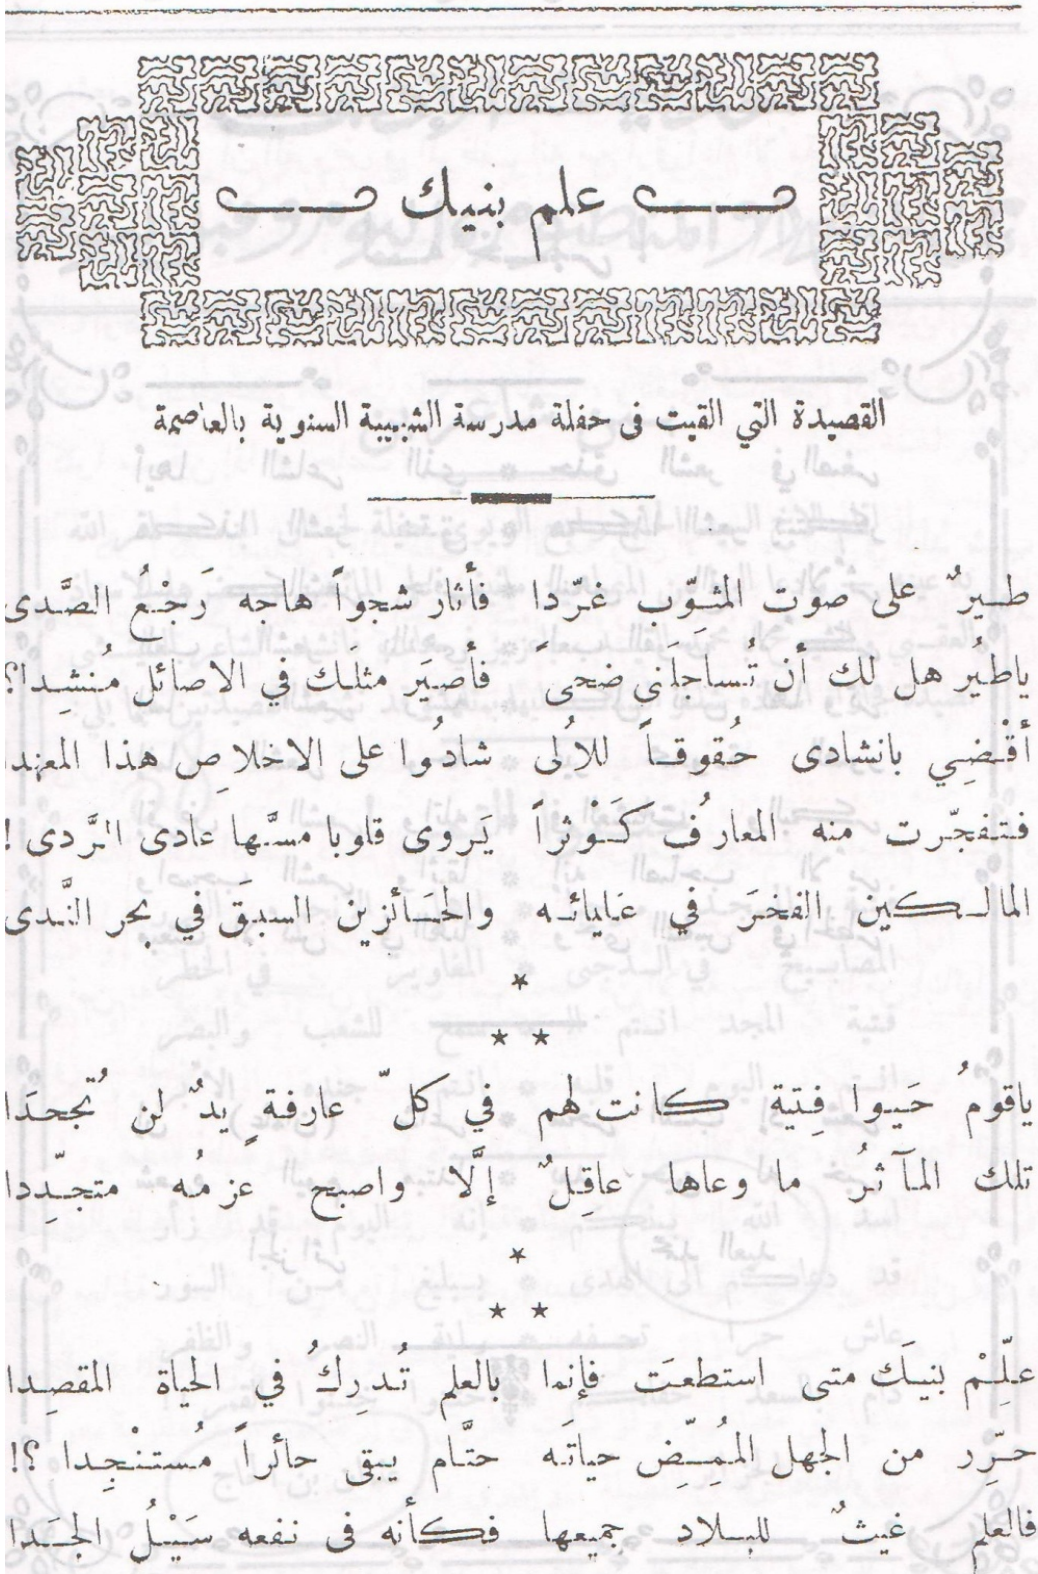 علم بنيك
القصيدة التي القيت فى حفلة مدرسة الشبيبة السنوية بالعاصمة
طيرٌ على صوت المثوِّب غرّدا فأثار شجواً هاجه رَجْعُ الصَّدى
ياطيُر هل لك أن تُساجلَني ضحىً فأصيَر مثلَك في الاصائل مُنشِدا؟
أقْضِي بانشادى حُقوقاً للأُلى شادُوا على الاخلاص هذا المعهدا
فتفجّرت منه المعارفُ كَوْثراً يَروى قلوبا مسَّها عادى الرَّدى !
المالكين الفخرَ في غاياته والحائزين السبقَ في بحر النَّدى
*
* *
ياقومُ حَيوا فِتيةً كانت لهم في كلّ عارفةٍ يدٌ لن تُجحدَا
تلك المآثرُ ما وعاها عاقِلٌ إلَّا واصبح عزمُه متجدِّدا
*
* *
علِّمْ بنيكَ متى استطعتَ فإنما بالعلم تُدرِكُ في الحياة المقصِدا
حرِّر من الجهل المُمِضِّ حياتَه حتَّام يبقى حائراً مُستنْجِدا ؟!
فالعلم غيثٌ للبلاد جميعها فكأنه فى نفعه سَيْلُ الجَدا